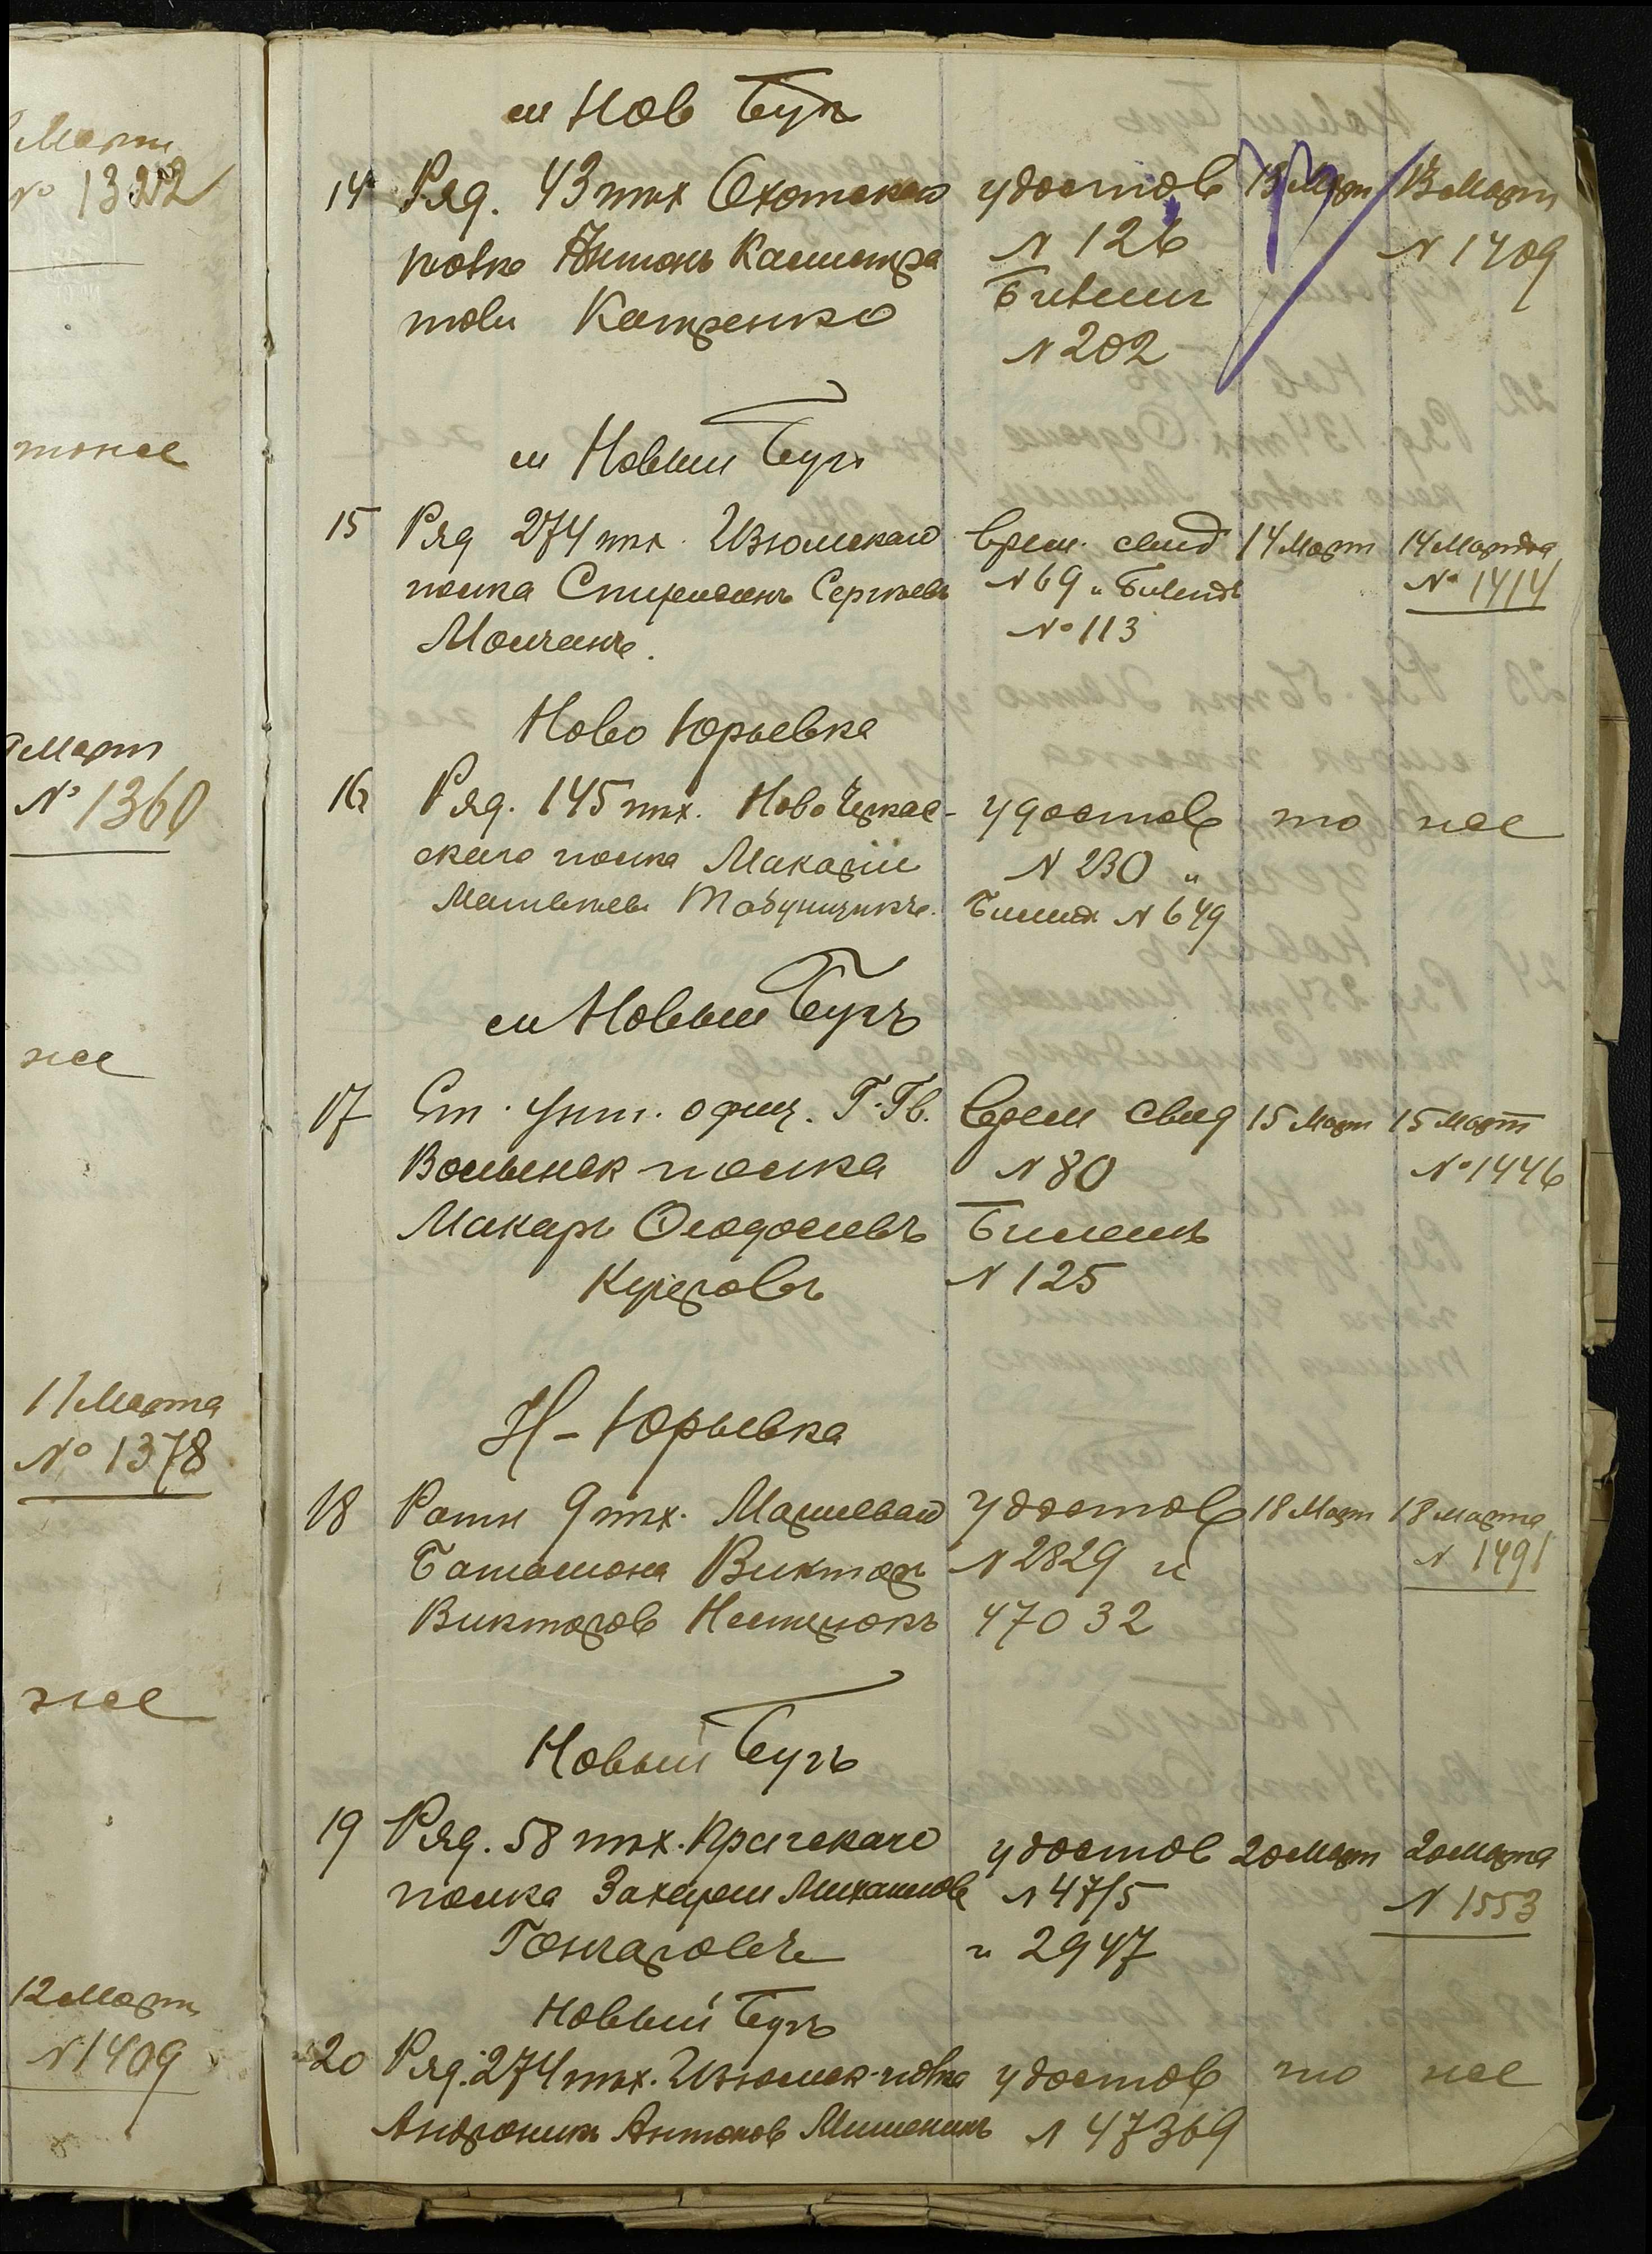 Марта
№ 1322
тоже
Март
№ 1360
же
11 Марта
№ 1378
же
12 Март
№ 1409
м Нов Бугъ
14 Ряд. 43 пѣх Охотскаго удостов 13 Март 13 Март
полка Антонъ Калистра № 126 № 1409
товъ Катренко Билетъ
№ 202
м Новый Бугъ
15 Ряд 274 пѣх. Изюмскаго врем. свид 14 Март 14 Марта
полка Спиридонъ Сергѣевъ № 69 и Билетъ № 1414
Молчанъ. № 113
Ново Юрьевка
16 Ряд. 145 пѣх. Ново Черкас- удостов то же
скаго полка Макарій № 230 и
Матвѣевъ Табунщикъ. Билетъ № 649
м Новый Бугъ
17 Ст. Унт. офиц. Г. Гв. Врем свид 15 Март 15 Март
Волынск полка № 80 № 1446
Макаръ Феодосіевъ Билетъ
№ 125
Н-Юрьевка
18 Ратн 9 пѣх. Маршеваго удостов 18 Март 18 марта
Баталіона Викторъ № 2829 и № 1491
Викторовъ Нестерюкъ 47032
Новый Бугъ
19 Ряд. 58 пѣх. Прагскаго удостов 20 Март 20 Марта
полка Захарій Михайловъ № 4715 № 1553
Гончаровъ и 2947
Новый Бугъ
20 Ряд. 274 пѣх. Изюмск. полка удостов то же
Андроникъ Антоновъ Мишенинъ № 47369